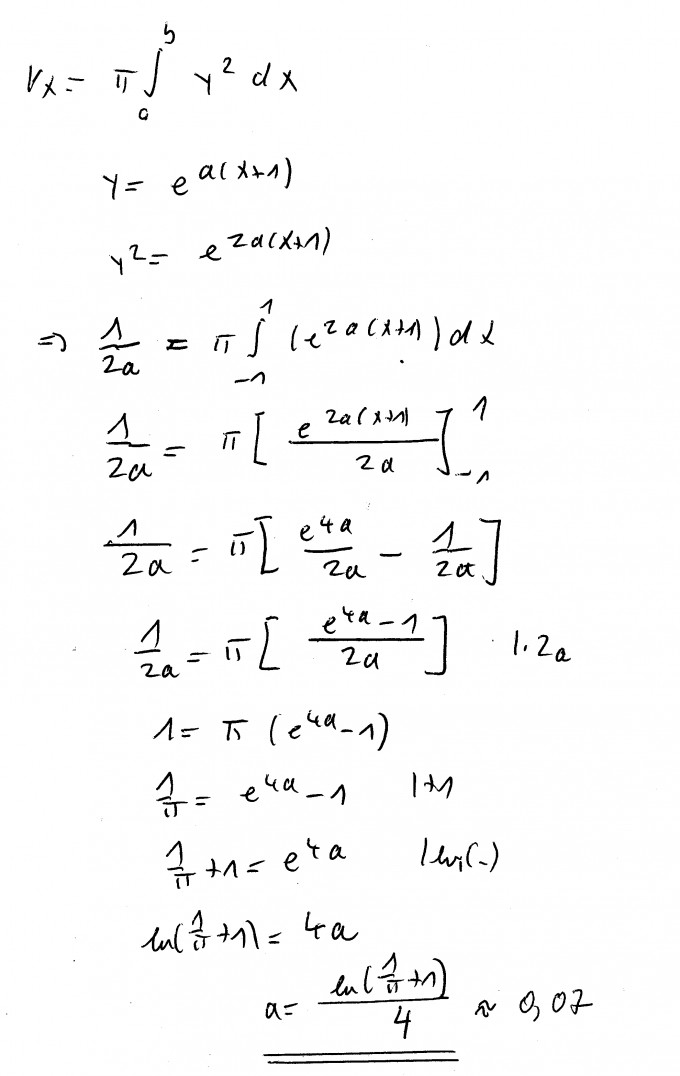 Vx = π ∫_a^b y² dx
y = e^{a(x+1)}
y² = e^{2a(x+1)}
⇒ 1/2a = π ∫_{-1}^{1} (e^{2a(x+1)}) dx
1/2a = π [ e^{2a(x+1)}/2a ]_{-1}^{1}
1/2a = π [ e^{4a}/2a − 1/2a ]
1/2a = π [ (e^{4a} − 1)/2a ] |·2a
1 = π (e^{4a} − 1)
1/π = e^{4a} − 1 |+1
1/π + 1 = e^{4a}
ln(1/π + 1) = 4a
a = ln(1/π + 1)/4 ≈ 0,07